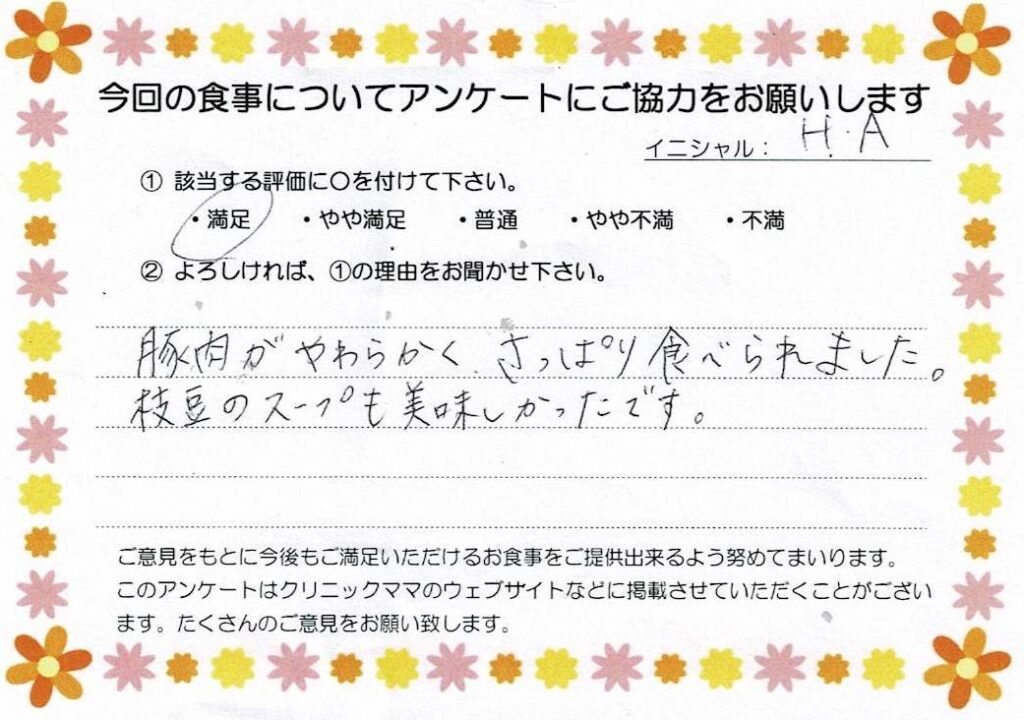 今回の食事についてアンケートにご協力をお願いします
イニシャル： H.A
① 該当する評価に〇を付けて下さい。
・満足 ・やや満足 ・普通 ・やや不満 ・不満
② よろしければ、①の理由をお聞かせ下さい。
豚肉がやわらかく、さっぱり食べられました。
枝豆のスープも美味しかったです。
ご意見をもとに今後もご満足いただけるお食事をご提供出来るよう努めてまいります。
このアンケートはクリニックママのウェブサイトなどに掲載させていただくことがござい
ます。たくさんのご意見をお願い致します。